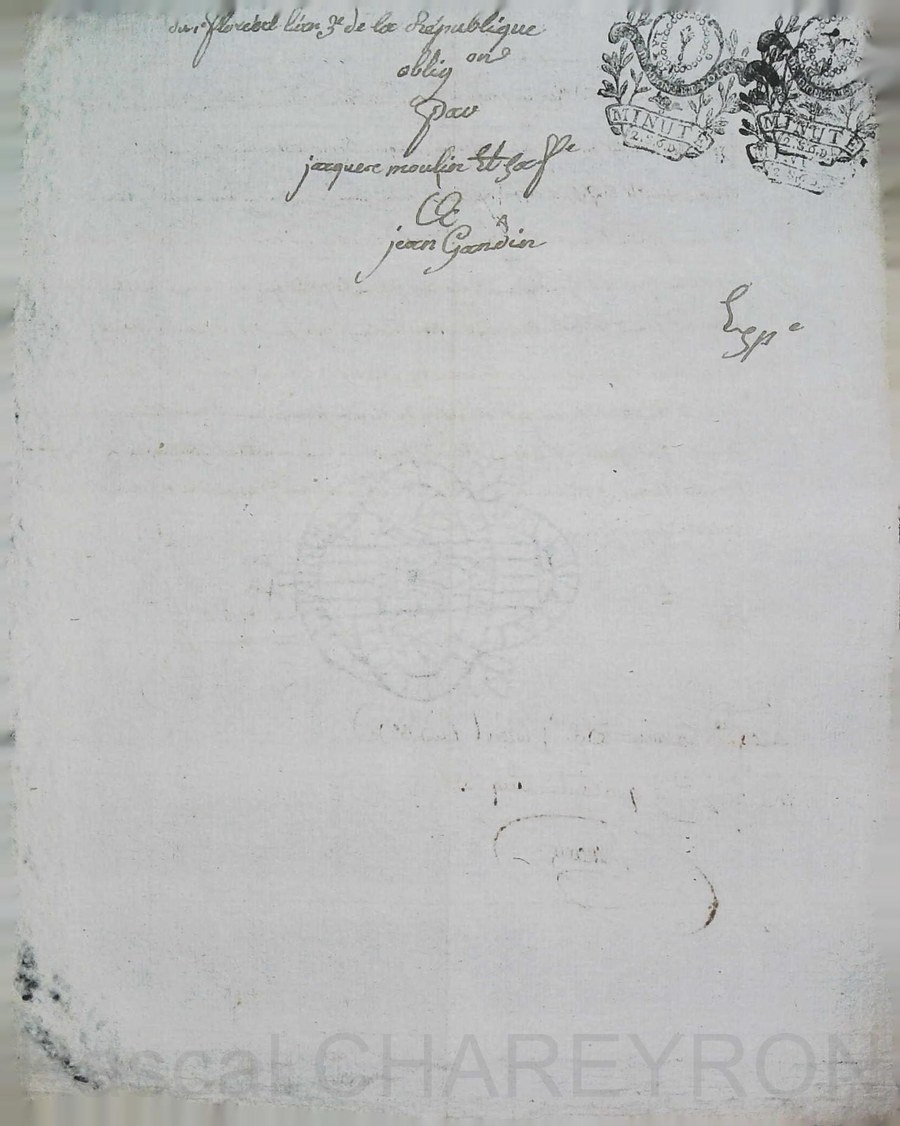 du 1er floreal l'an 3e de la République
oblig on
par
jacques moulin Et sa fe
A
jean Gandin
Expe
MINUTE
MINUTE
2.S.6.D.
Pascal CHAREYRON